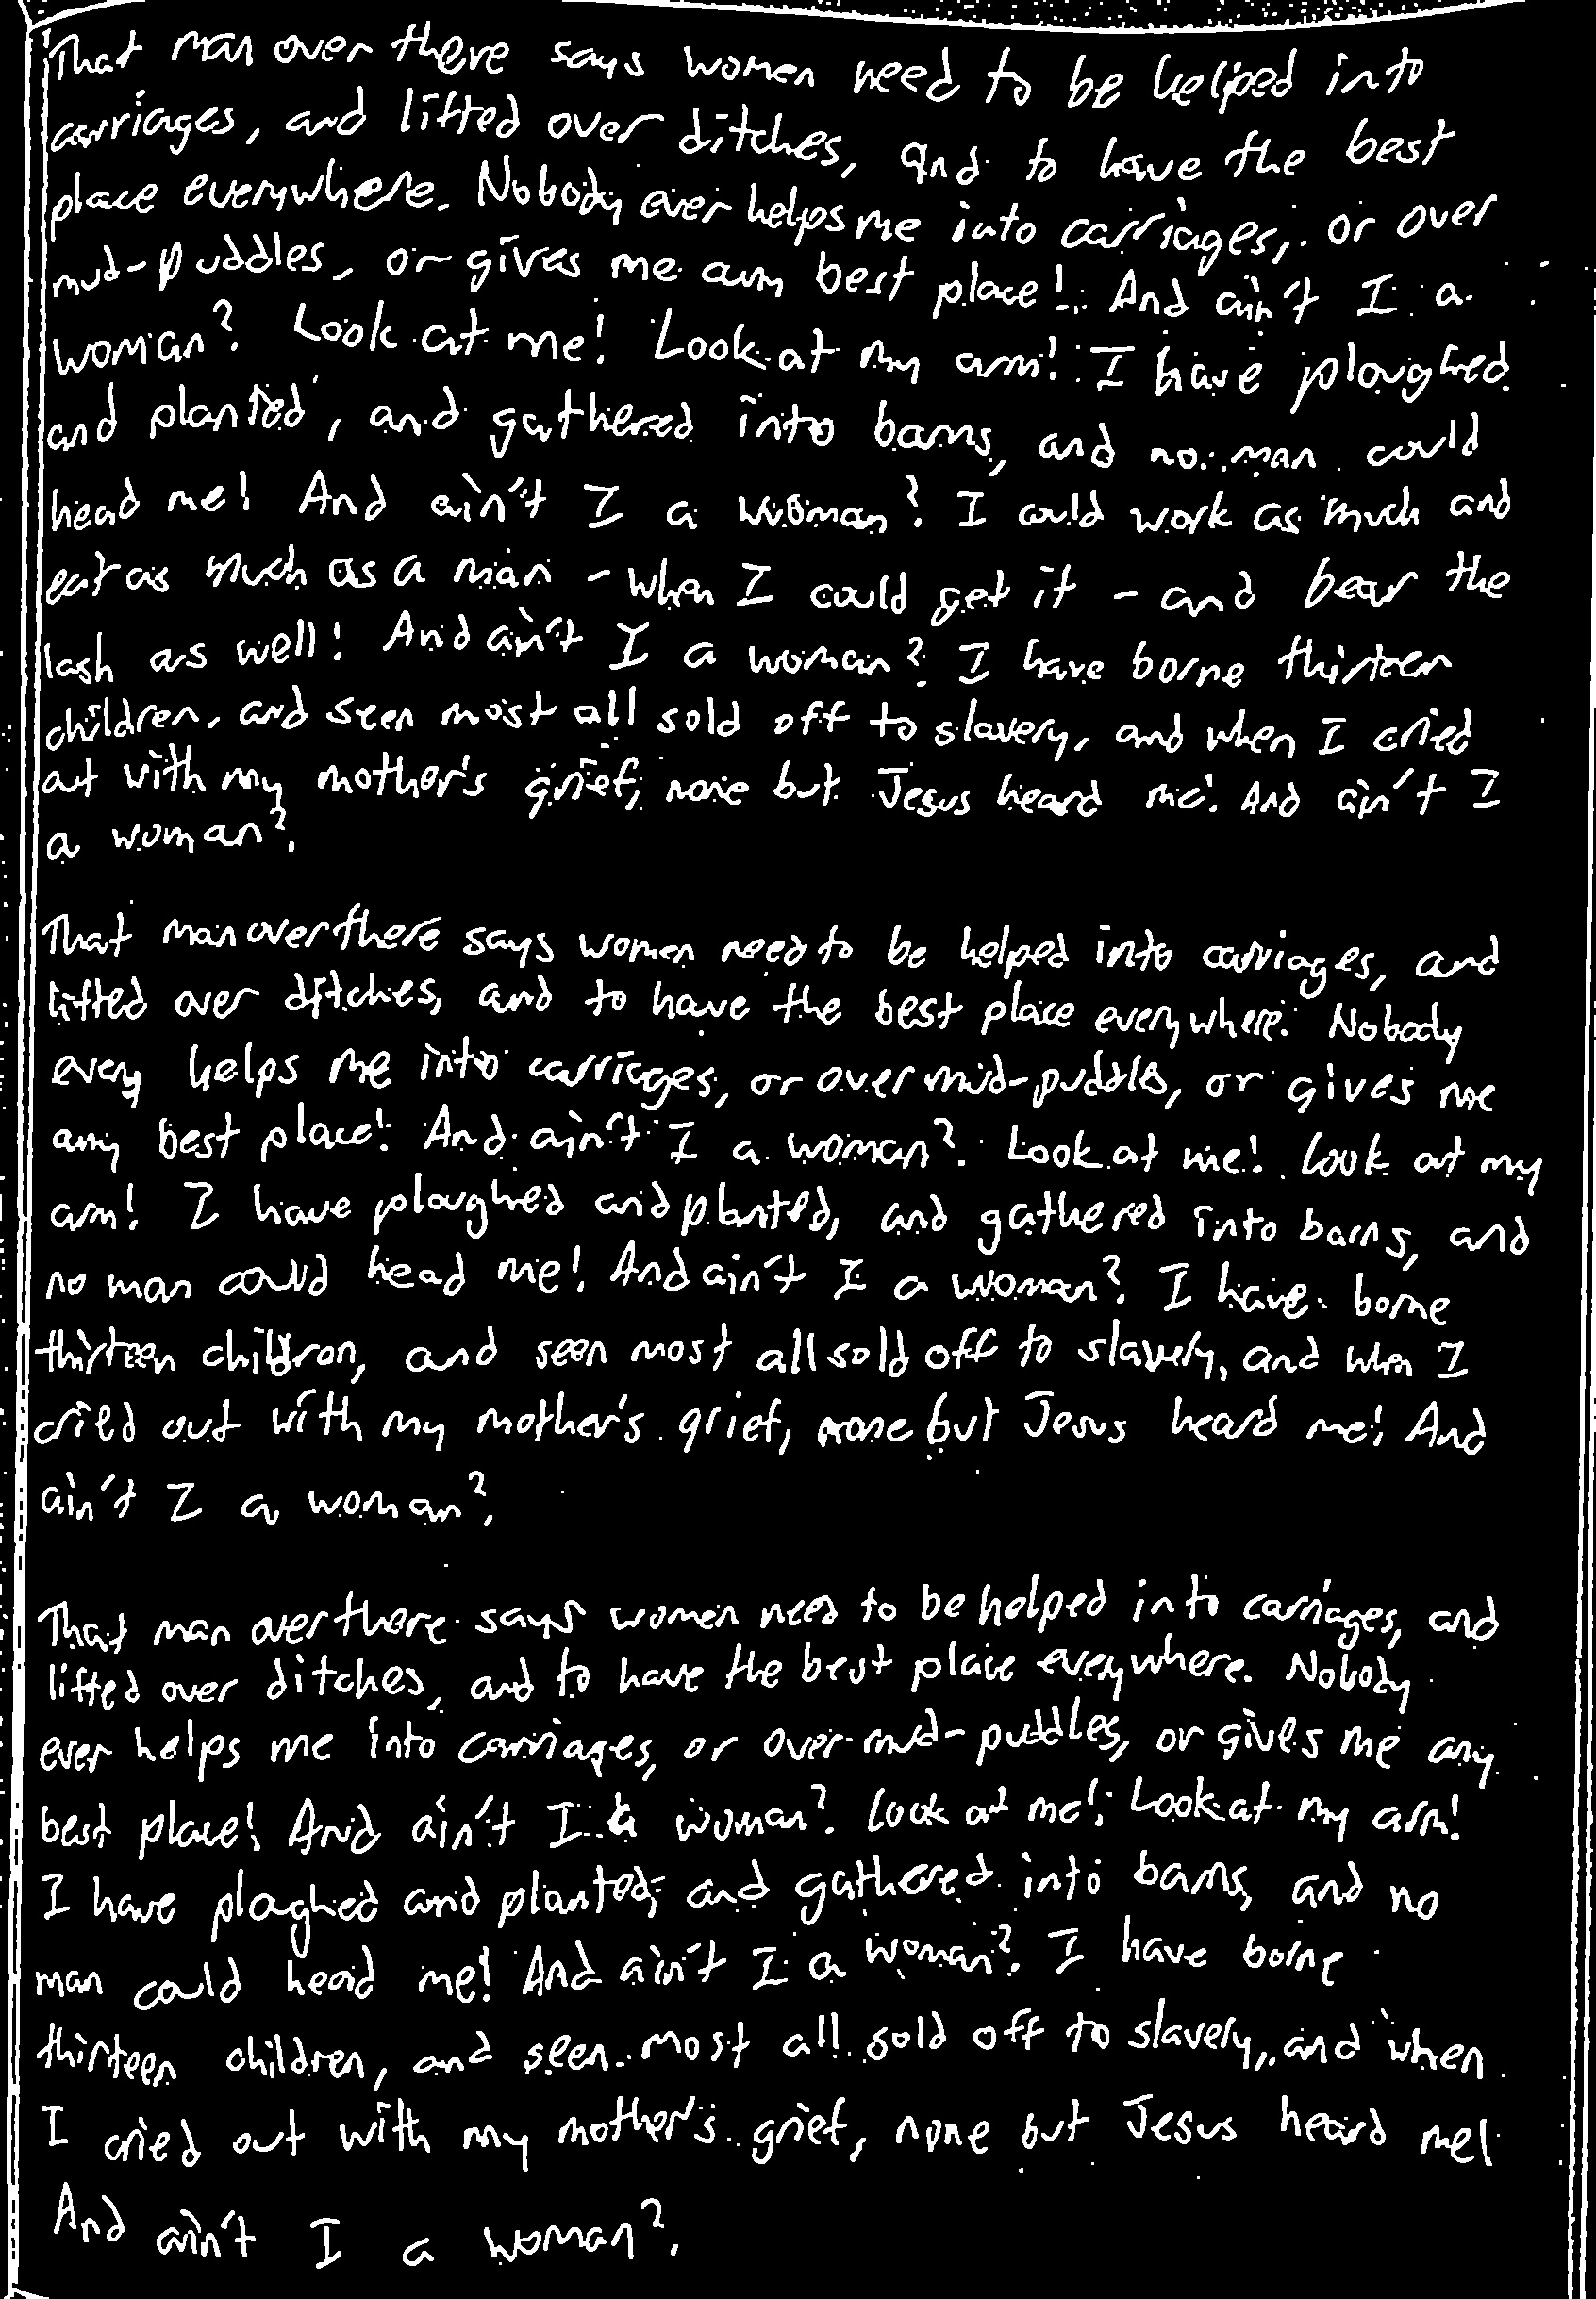 That man over there says women need to be helped into
carriages, and lifted over ditches, and to have the best
place everywhere. Nobody ever helps me into carriages, or over
mud-puddles, or gives me any best place! And ain't I a
woman? Look at me! Look at my arm! I have ploughed
and planted, and gathered into barns, and no man could
head me! And ain't I a woman? I could work as much and
eat as much as a man - when I could get it - and bear the
lash as well! And ain't I a woman? I have borne thirteen
children, and seen most all sold off to slavery, and when I cried
out with my mother's grief, none but Jesus heard me! And ain't I
a woman?
That man over there says women need to be helped into carriages, and
lifted over ditches, and to have the best place everywhere. Nobody
every helps me into carriages, or over mud-puddles, or gives me
any best place! And ain't I a woman? Look at me! Look at my
arm! I have ploughed and planted, and gathered into barns, and
no man could head me! And ain't I a woman? I have borne
thirteen children, and seen most all sold off to slavery, and when I
cried out with my mother's grief, none but Jesus heard me! And
ain't I a woman?
That man over there says women need to be helped into carriages, and
lifted over ditches, and to have the best place everywhere. Nobody
ever helps me into carriages, or over mud-puddles, or gives me any
best place! And ain't I a woman? Look at me! Look at my arm!
I have ploghed and planted, and gathered into barns, and no
man could head me! And ain't I a woman? I have borne
thirteen children, and seen most all sold off to slavery, and when
I cried out with my mother's grief, none but Jesus heard me!
And ain't I a woman?